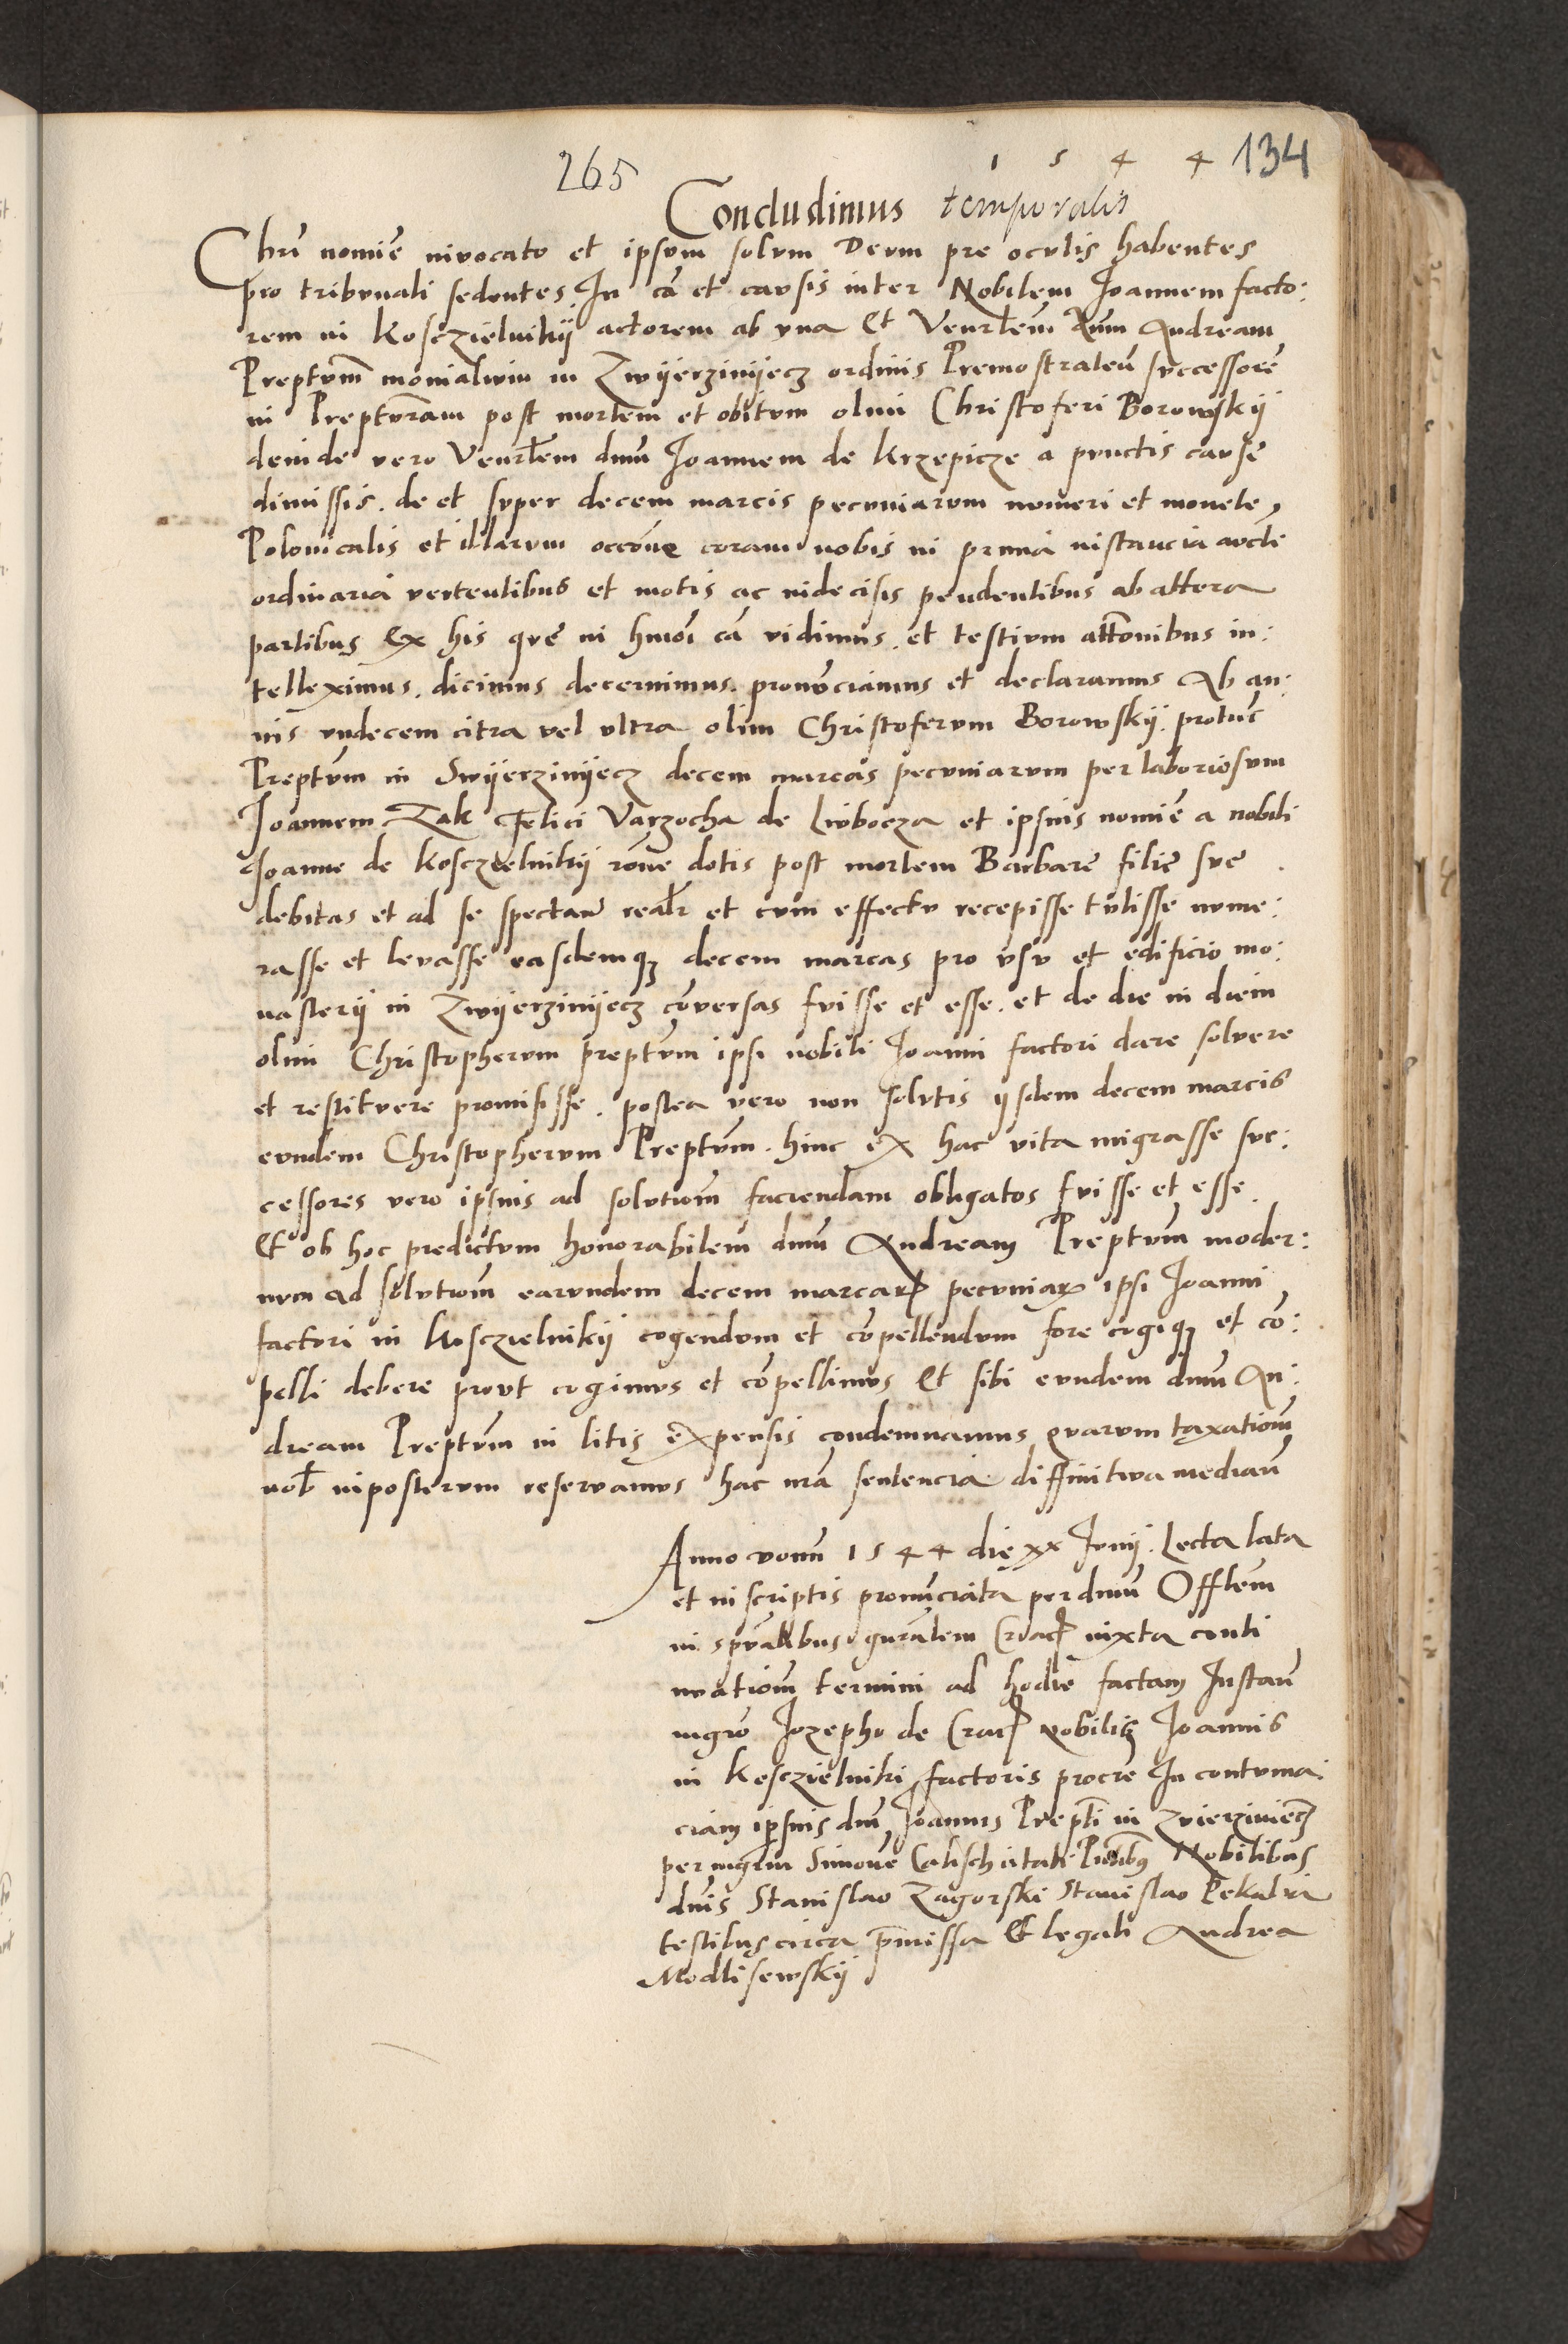 1 5 4 4 134
265
Concludimus temporalis
Chri nomiē invocato et ipsum solum Deum pre oculis habentes
pro tribunali sedentes. In cā et causis inter Nobilem Joannem facto:
rem in Kosczielnikij actorem ab una Et Venrlēm dnm Andream
Preptūm monialium in Zwijerzinijecz ordinis Premostrateñ successorē
in Preptūram post mortem et obitum olim Christoferi Borowskij
deinde vero Venrlēm dnm Joannem de Krzepicze a punctis cause
dimissis. de et super decem marcis pecuniarum numeri et monete
Polonicalis et illarum occōne coram nobis in prima instancia aucte
ordinaria vertentibus et motis ac indecisis pendentibus ab altera
partibus Ex his que in hmōi cā vidimus. et testium attōnibus in:
telleximus. dicimus decernimus. pronūnciamus et declaramus Ab an:
nis undecem citra vel ultra olim Christoferum Borowskij. protūc
Preptūm in Swijerzinijecz decem marcas pecuniarum per laboriosum
Joannem Zak Felici Varzocha de Lubocza et ipsius nomiē a nobili
Joanne de Kosczielnikij rōne dotis post mortem Barbare filie sue
debitas et ad se spectañ realr et cum effectu recepisse tulisse nume:
rasse et levasse easdemq3 decem marcas pro usu et edificio mo:
nasterij in Zwijerzinijecz cōversas fuisse et esse. et de die in diem
olim Christopherum preptūm ipsi nobili Joanni factori dare solvere
et restituere promisisse. postea vero non solutis ijsdem decem marcis
eundem Christopherum Preptūm. hinc ex hac vita migrasse suc:
cessores vero ipsius ad solutiom faciendam obligatos fuisse et esse.
Et ob hoc predictum honorabilem dnm Andream Preptūm moder:
num ad solutiom earundem decem marcarꝝ pecuniarꝝ ipsi Joanni
factori in Kosczielnikij cogendum et cōpellendum fore cogiq3 et cō:
pelli debere prout cogimus et cōpellimus Et sibi eundem dnm An:
dream Preptūm in litis expensis condemnamus quarum taxatiom
nob inposterum reservamus hac nrā sentencia diffinitiva mediañ
Anno domī 1544 die xx Junij. Lecta lata
et in scriptis pronūnciata per dnm Offlēm
in spūalibus gnrālem Cracꝭ iuxta conti
nuatiom termini ad hodie factam Instañ
mgro Jozepho de Cracꝭ nobilis Joannis
in Kosczielniki factoris procre In contuma:
ciam ipsius dni Joannis Prepti in Zvierziniecz
per mgrm Simone Pntibus Nobilibus
dnis Stanislao Zagorski Stanislao Pekalia
testibus circa p̄missa Et legali Andrea
Modlisewskij